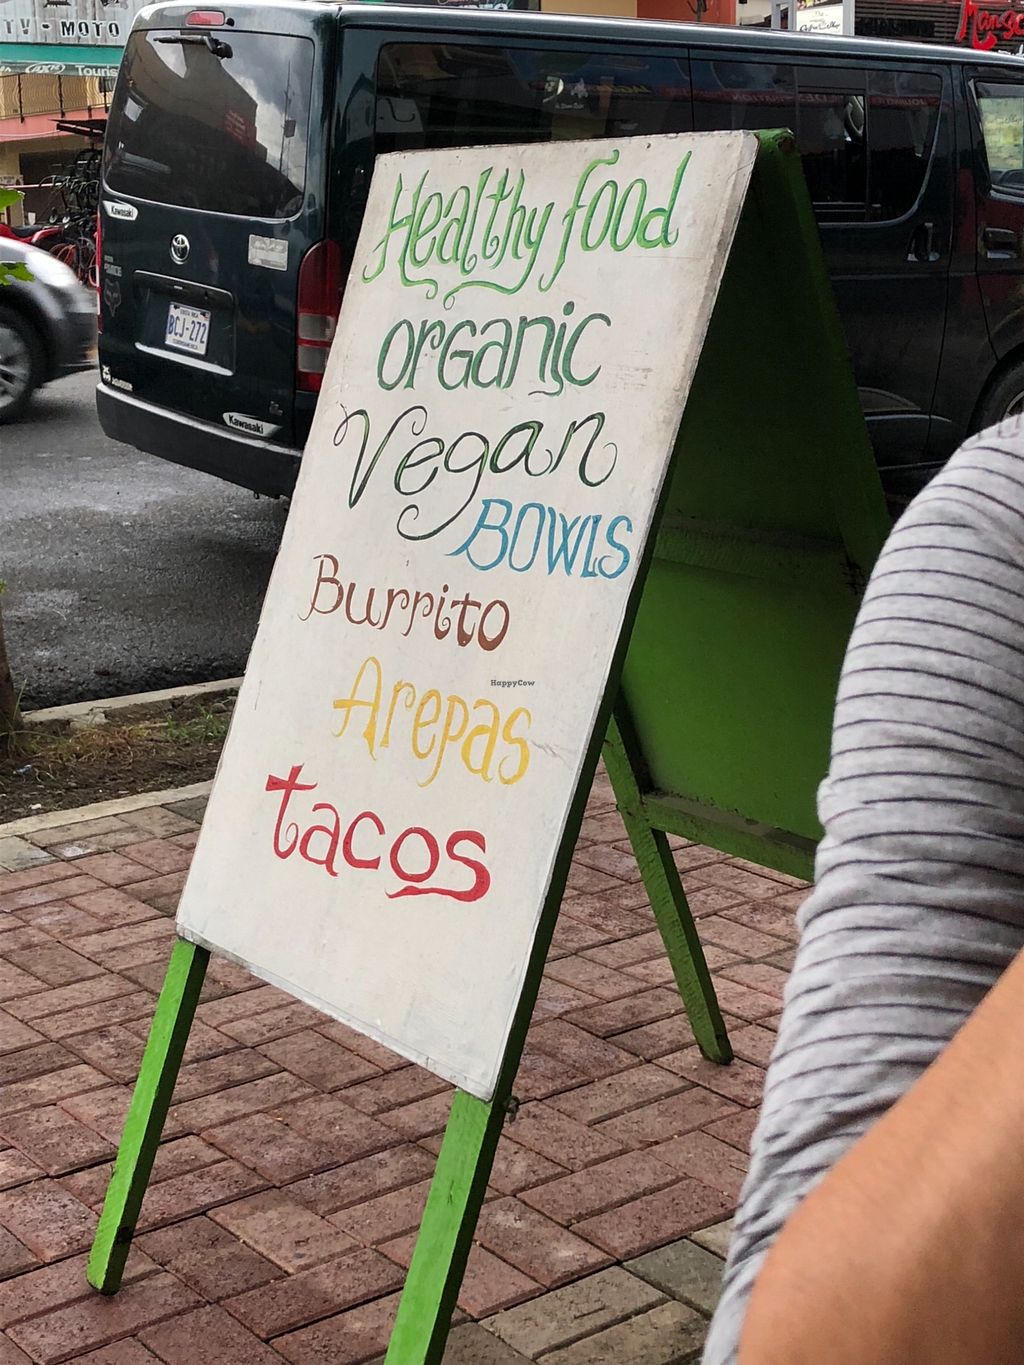 TV - MOTO
Kawasaki
COSTA RICA
BCJ-272
CENTROAMERICA
Kawasaki
Healthy food
organic
Vegan
BOWLS
Burrito
Arepas
tacos
HappyCow